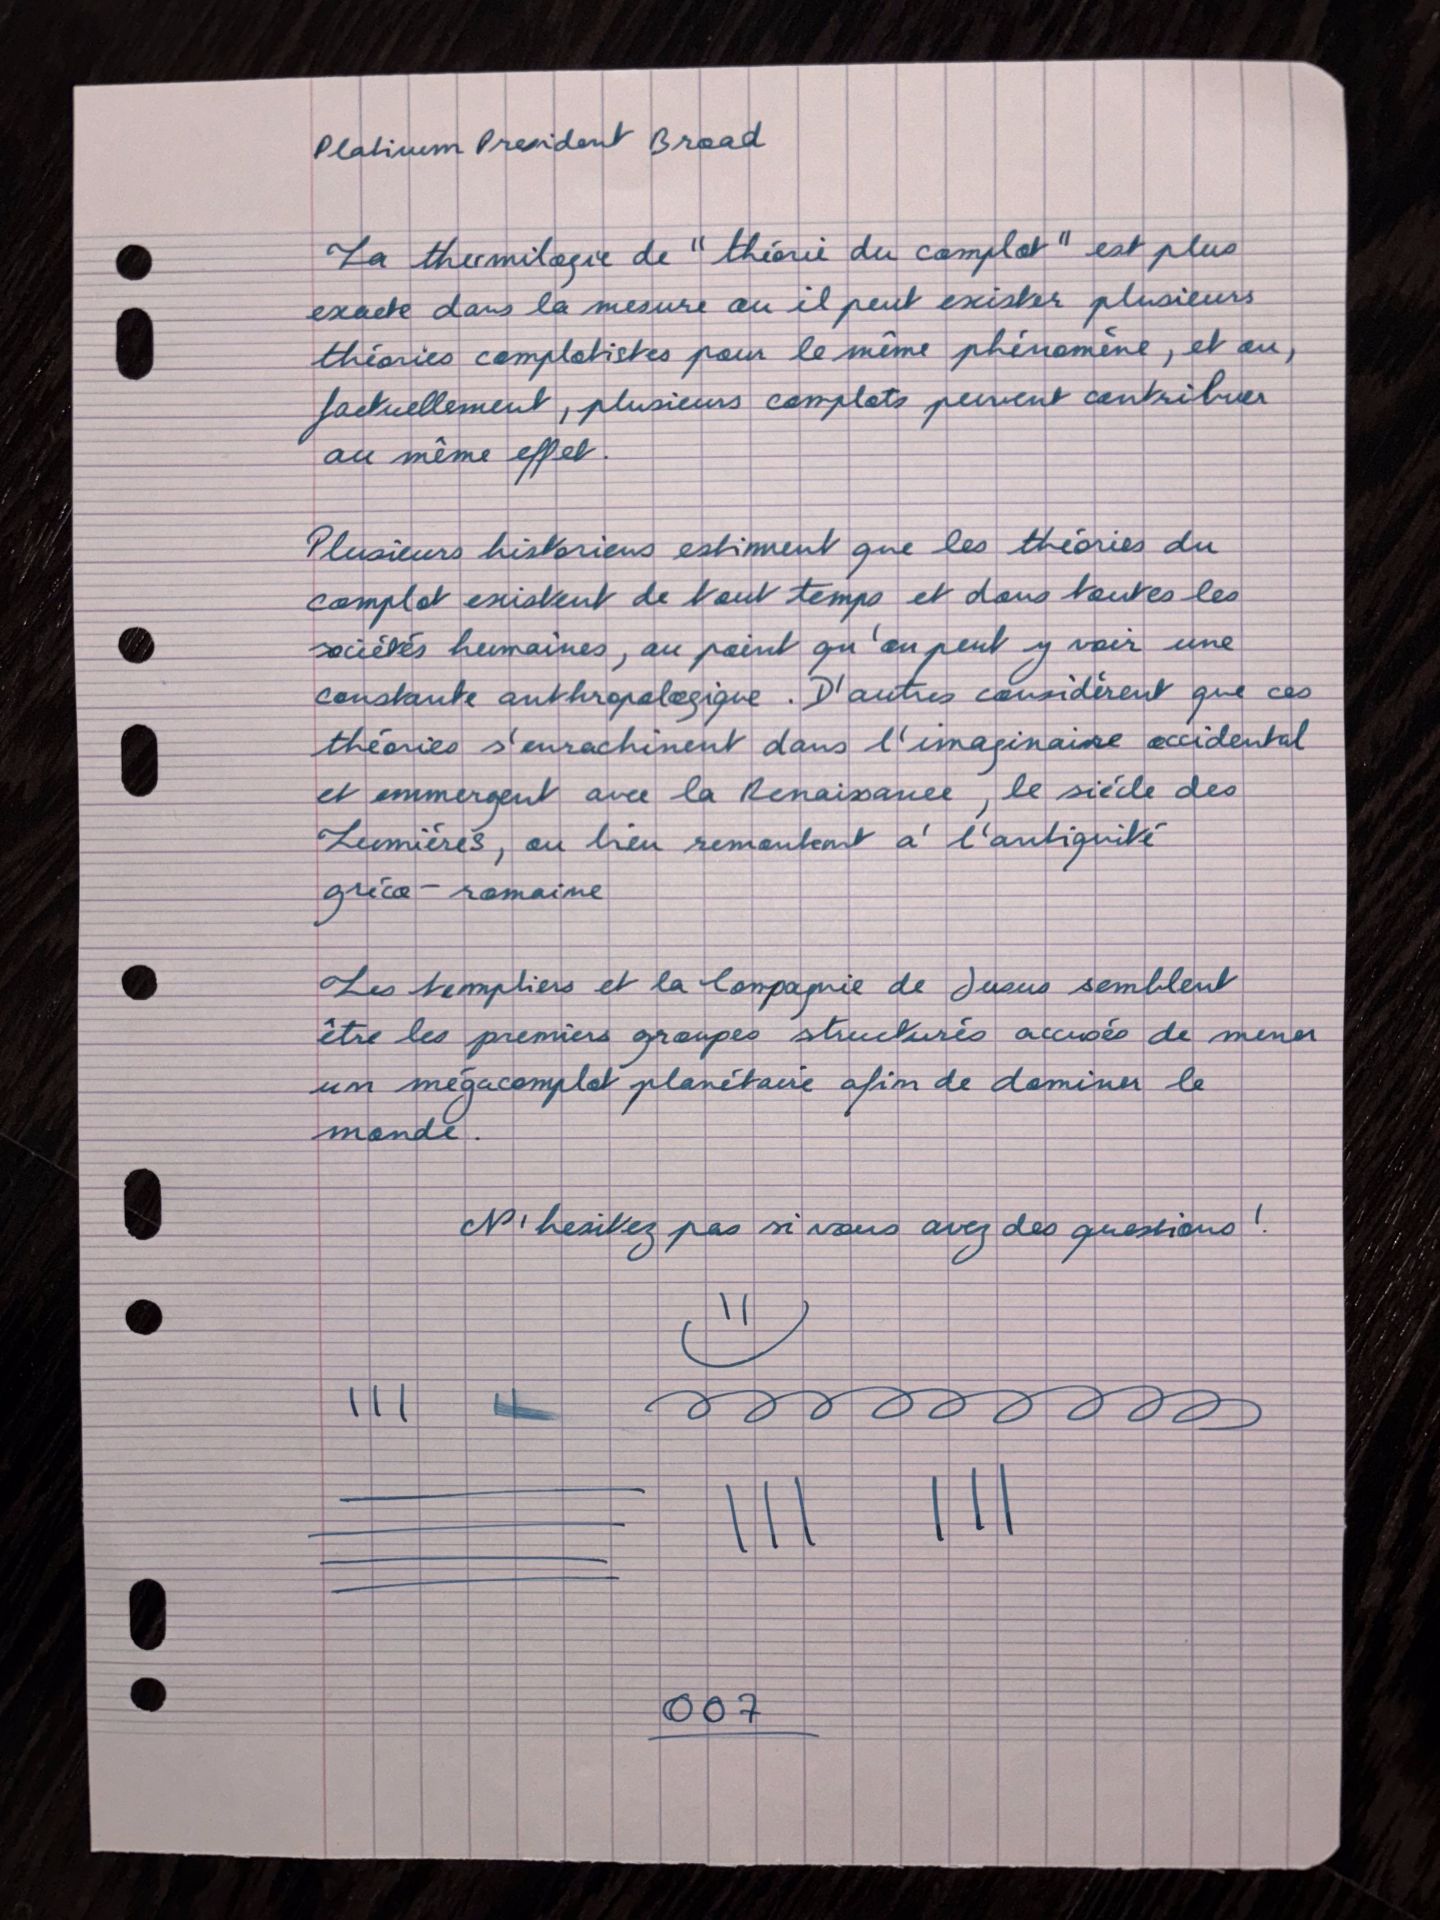 Platinum President Broad
La thermilogie de "théorie du complot" est plus
exacte dans la mesure ou il peut exister plusieurs
théories complotistes pour le même phénomène, et ou,
factuellement, plusieurs complots peuvent contribuer
au même effet.
Plusieurs historiens estimment que les théories du
complot existent de tout temps et dans toutes les
sociétés humaines, au point qu'on peut y voir une
constante anthropologique. D'autres considèrent que ces
théories s'enrachinent dans l'imaginaire occidental
et emmergent avec la Renaissance, le siècle des
Lumières, ou bien remontent à l'antiquité
gréco-romaine
Les templiers et la Compagnie de Jusus semblent
être les premiers groupes structurés accusés de mener
un mégacomplot planétaire afin de dominer le
monde.
N'hesitez pas si vous avez des questions !
007